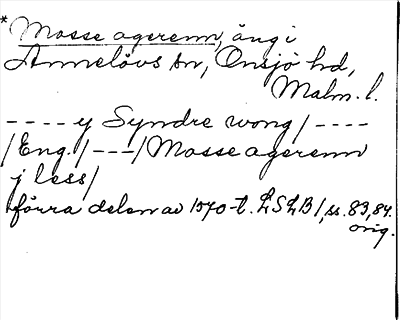 * Mosse agerenn, äng i
Annelövs sn, Onsjö hd,
Malm. l.
- - - - y Syndre wong / - - - -
/ Eng. / - - - / Mosse agerenn
j less /
förra delen av 1570-t. LSLB 1, ss. 83, 84.
orig.